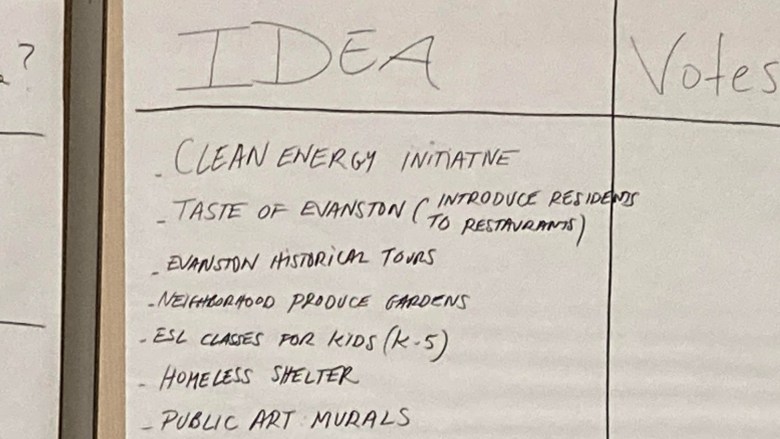 ?
IDEA
Votes
- CLEAN ENERGY INITIATIVE
- TASTE OF EVANSTON (INTRODUCE RESIDENTS
TO RESTAURANTS)
- EVANSTON HISTORICAL TOURS
- NEIGHBORHOOD PRODUCE GARDENS
- ESL CLASSES FOR KIDS (K-5)
- HOMELESS SHELTER
- PUBLIC ART MURALS